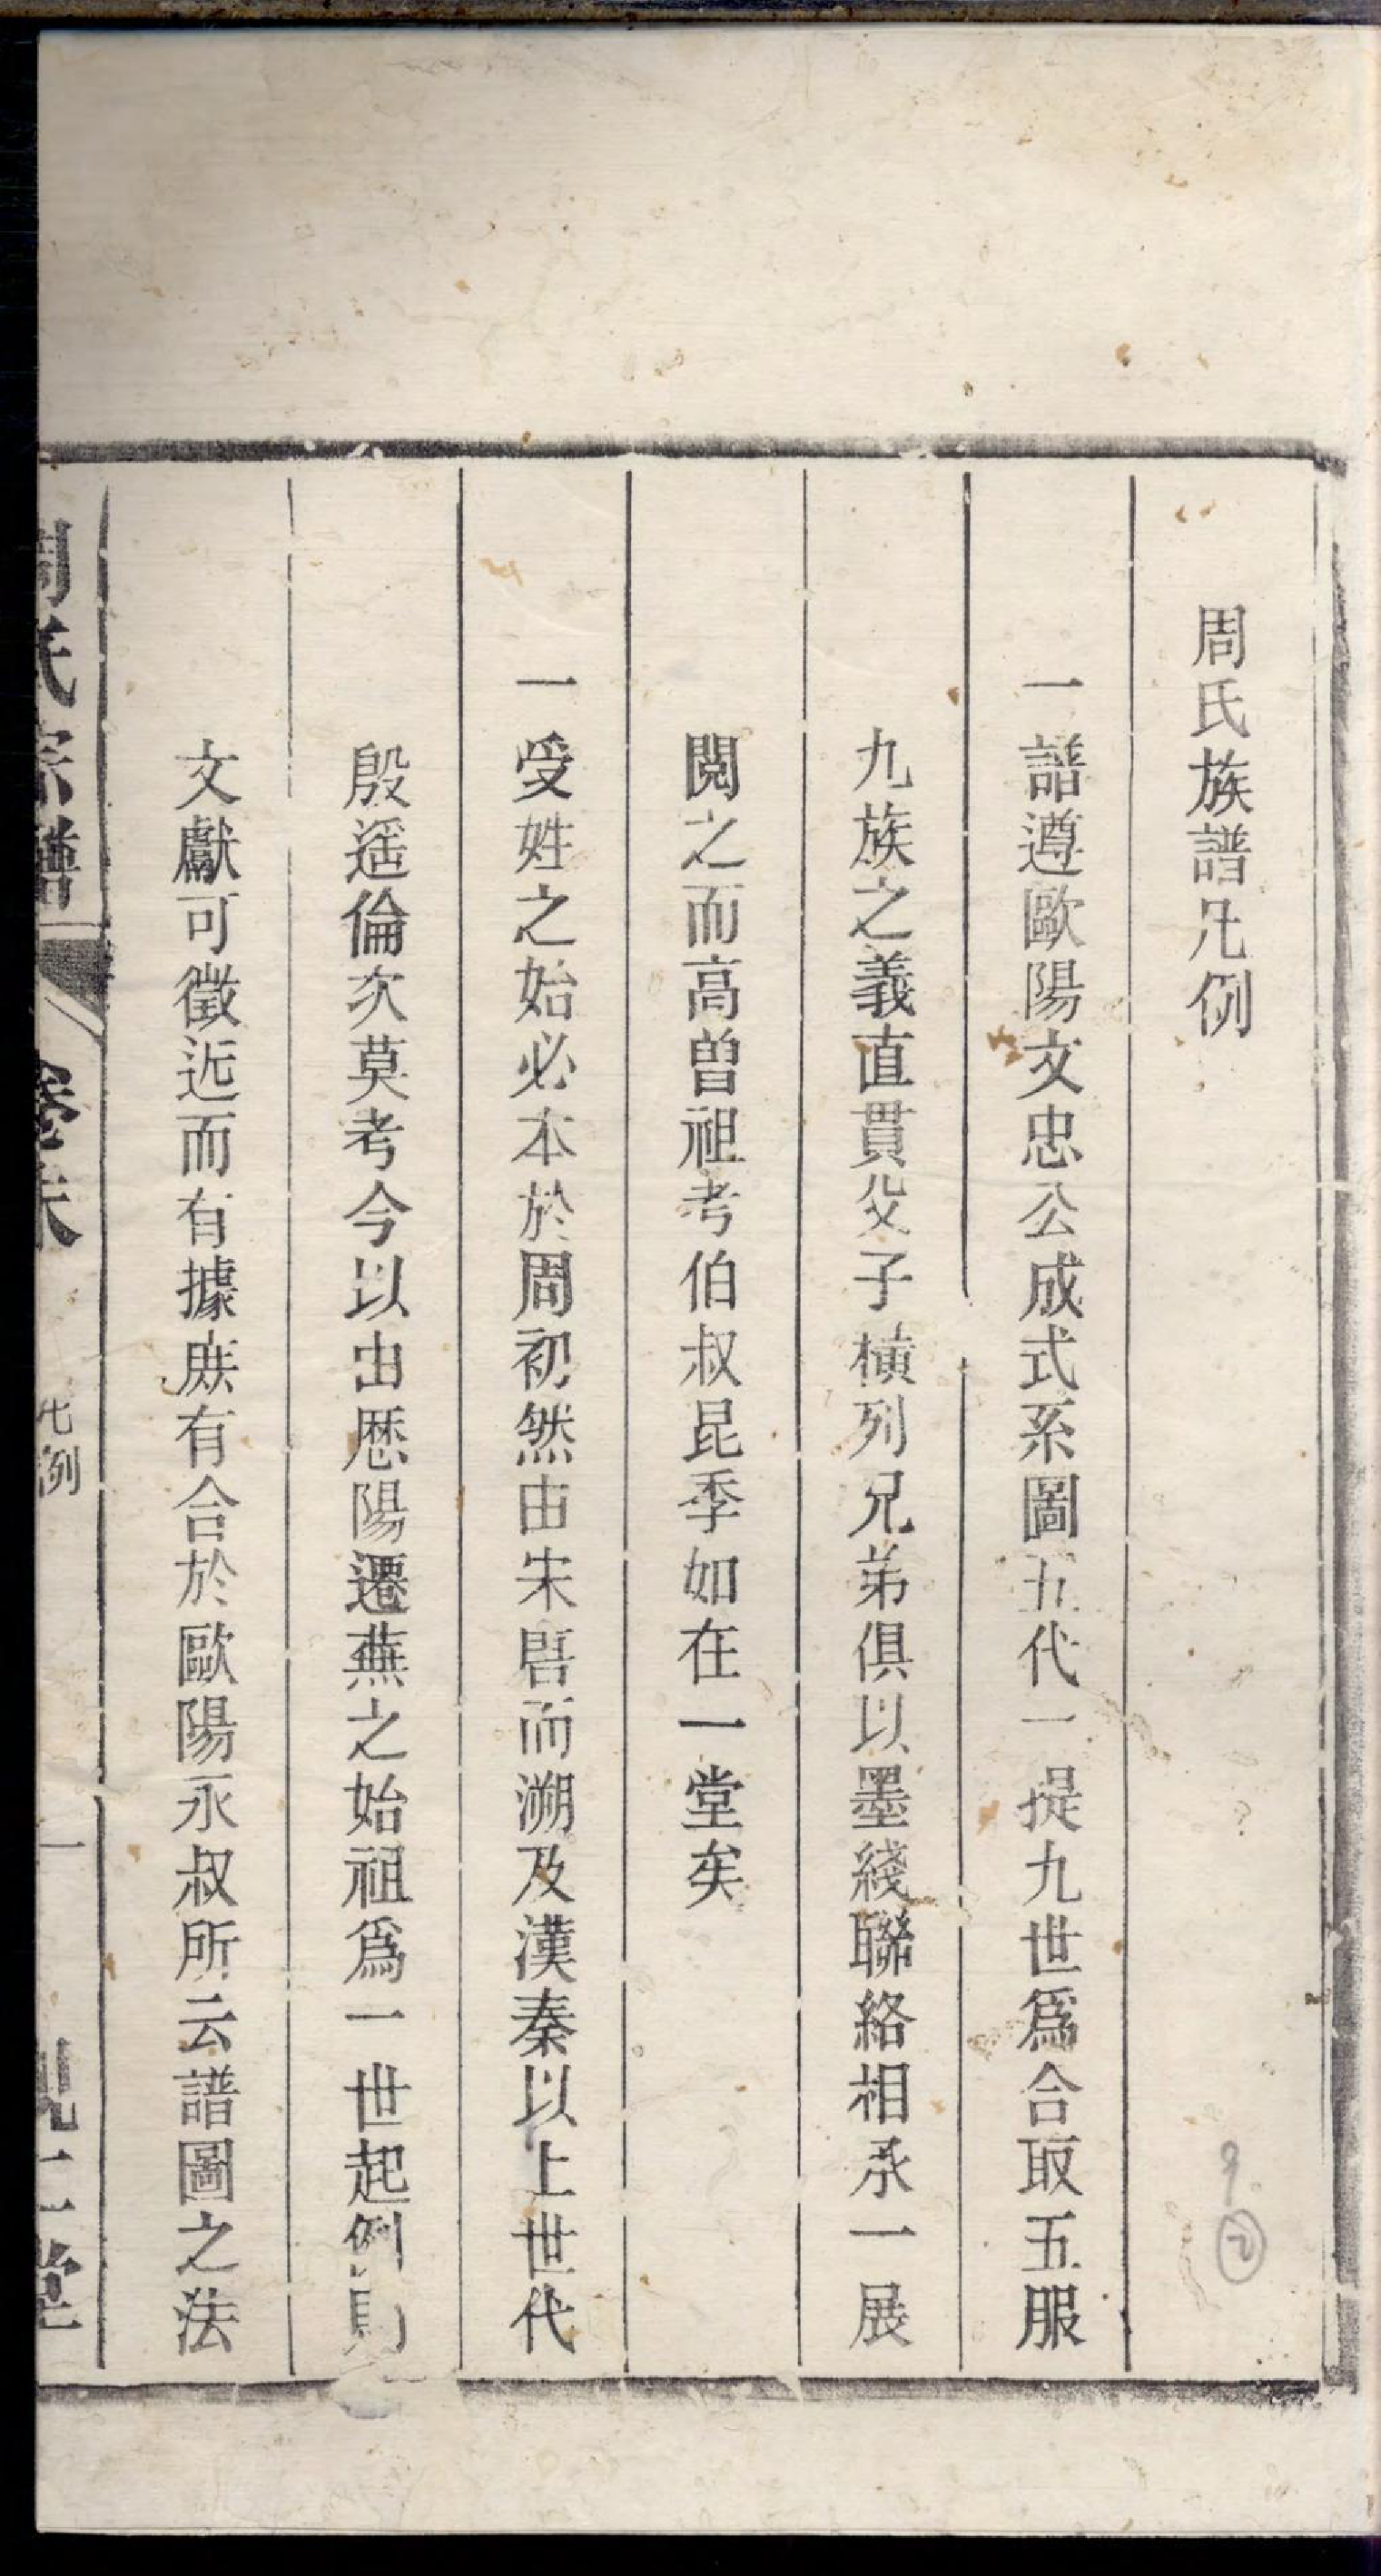 周氏族譜凡例
一譜遵歐陽文忠公成式系圖五代一提九世爲合取五服
九族之義直貫父子橫列兄弟俱以墨綫聯絡相承一展
閱之而高曾祖考伯叔昆季如在一堂矣
一受姓之始必本於周初然由宋唐而溯及漢秦以上世代
殷遥倫次莫考今以由歷陽遷蕪之始祖爲一世起例則
文獻可徵近而有據庶有合於歐陽永叔所云譜圖之法
周氏宗譜
卷末
凡例
一
堂
9
②